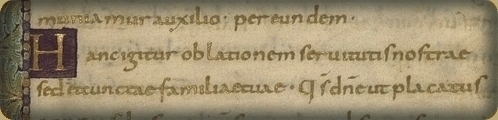 muniamur auxilio· per eundem·
Hanc igitur oblationem servitutis nostrae
sed et cunctae familiae tuae· Qs dne ut placatus